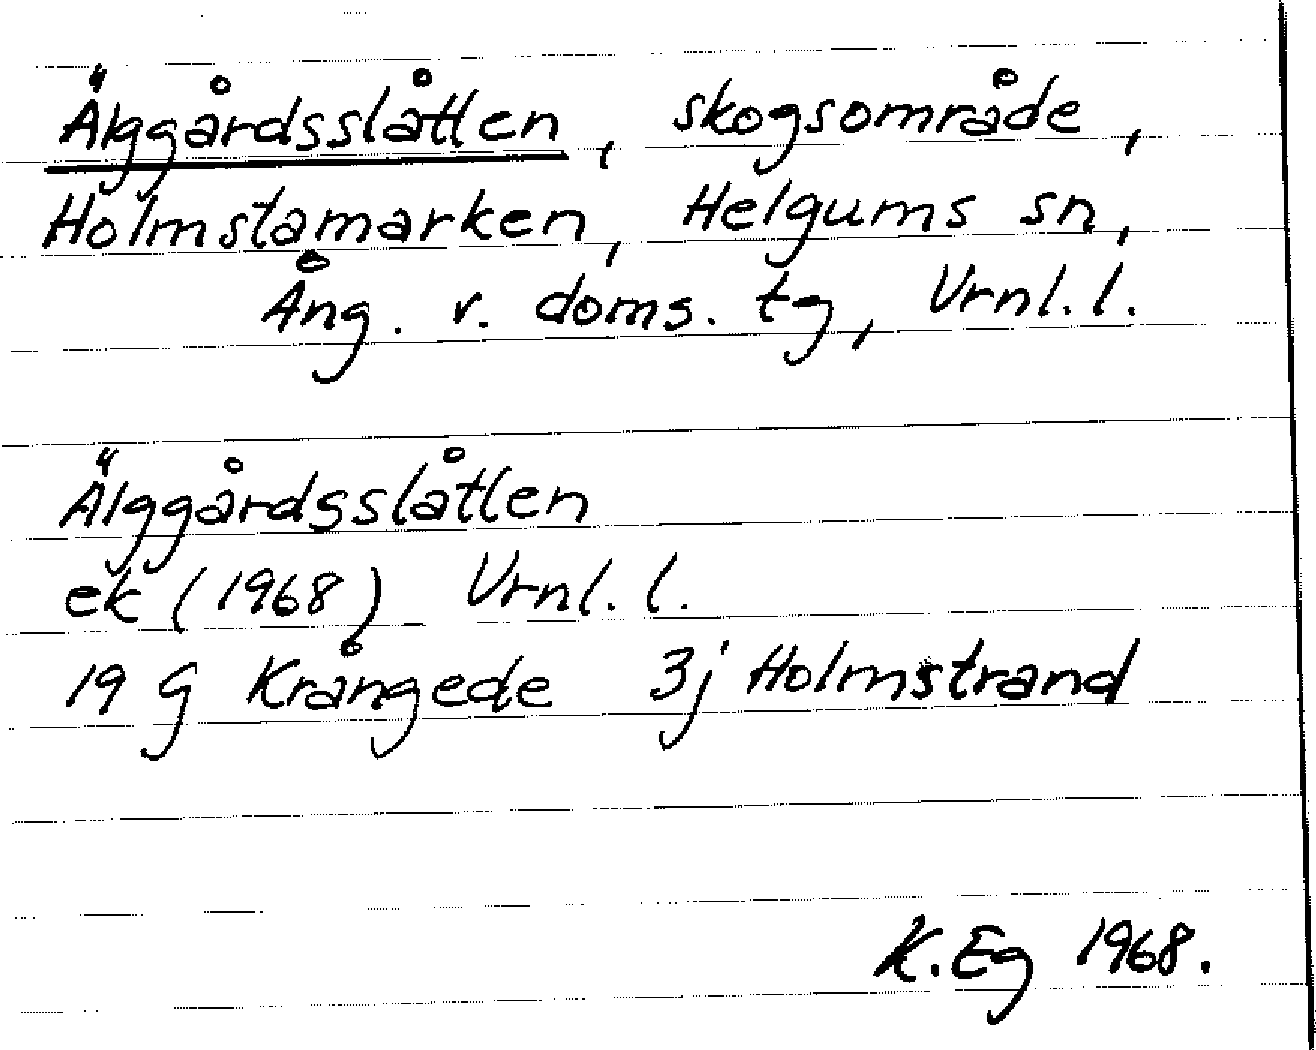 Älggårdsslåtten, skogsområde,
Holmstamarken, Helgums sn,
Ång. v. doms. tg, Vrnl. l.
Älggårdsslåtten
ek (1968) Vrnl. l.
19 G Krångede 3j Holmstrand
K. Eg 1968.